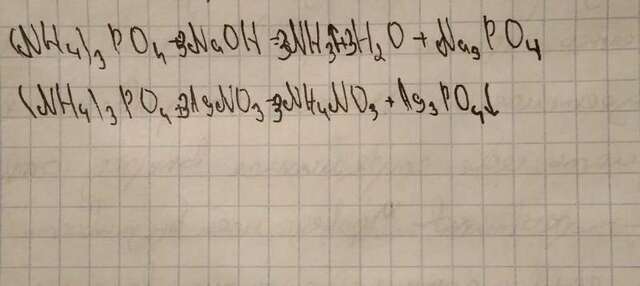 (NH₄)₃PO₄+3NaOH=3NH₃↑+3H₂O+Na₃PO₄
(NH₄)₃PO₄+3AgNO₃=3NH₄NO₃+Ag₃PO₄↓